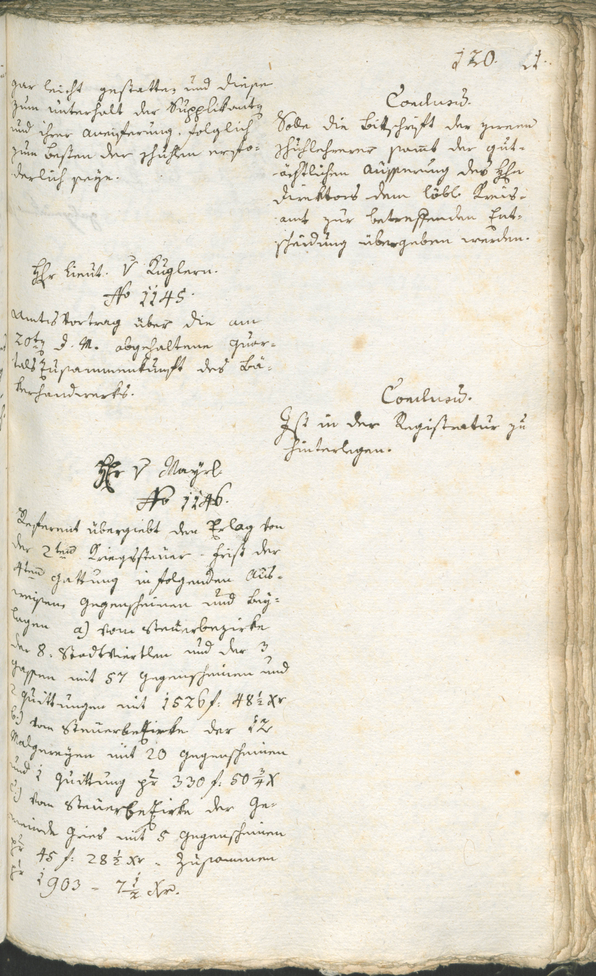 120.
gar leicht gestatten, und diese
zum unterhalt der Supplikanten
und ihrer aneiferung, folglich
zum besten der schuhlen erfor-
derlich seye.
Conclusum.
Solle die Bittschrift der zween
schuhllehrerer samt der gut-
ächtlichen äusserung des Hhr
Direktors dem löbl. Kreis-
amt zur betreffenden Ent-
scheidung übergeben werden.
Hhr Lieut. v Kuglern.
No 1145.
Amtsvortrag über die am
20ten d. M. abgehaltene Quar-
tals Zusammenkunft des Bä-
kerhandwerks.
Conclusum.
Ist in der Registratur zu
hinterlegen.
Hhr v Mayrl
No 1146.
Referent übergiebt den Erlag von
der 2ten Kriegssteuer-frist der
4ten gattung in folgenden Aus-
weisen, gegenscheinen und Bey-
lagen a) vom steuerbezirke
der 8. Stadtviertlen und der 3
gassen mit 57 gegenscheinen und
2 Quittungen mit 1526 f: 48½ Xr
b) vom Steuerbezirke der 12
Malgereyen mit 20 gegenscheinen
und 1 Quittung pr 330 f: 50¾ X
c) vom Steuerbezirke der Ge-
meinde Gries mit 5 gegenscheinen
pr 45 f: 28½ Xr - Zusammen
pr 1903 - 7½ Xr.